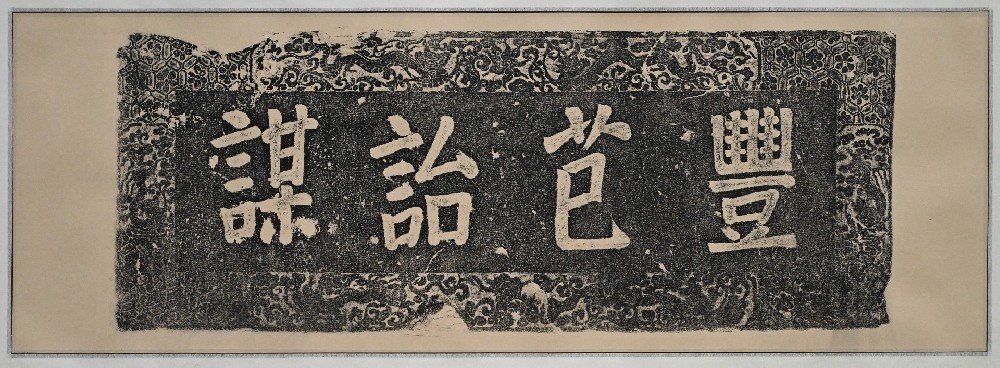 豐芑詒謀